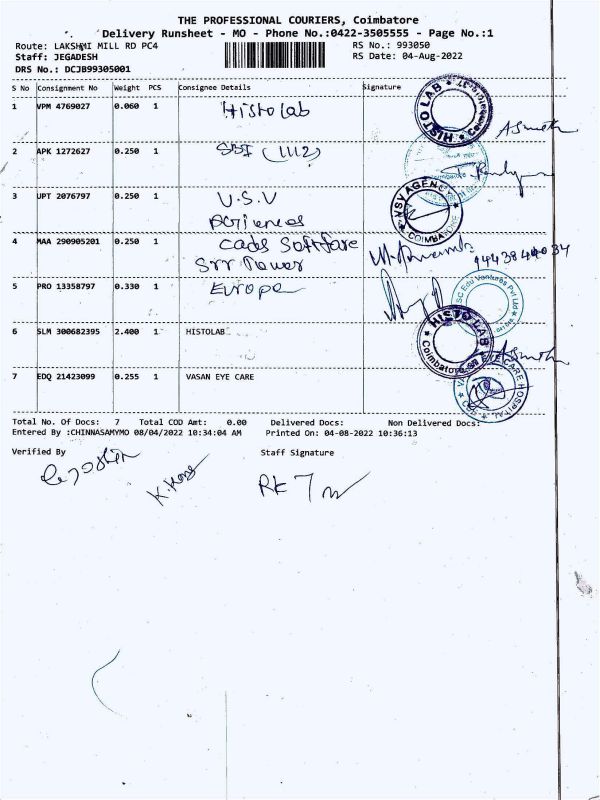 THE PROFESSIONAL COURIERS, Coimbatore
Delivery Runsheet - MO - Phone No.:0422-3505555 - Page No.:1
Route: LAKSHMI MILL RD PC4 RS No.: 993050
Staff: JEGADESH RS Date: 04-Aug-2022
DRS No.: DCJB99305001
S No Consignment No Weight PCS Consignee Details Signature
1 VPM 4769027 0.060 1 Histolab
HISTO LAB Coimbatore
2 APK 1272627 0.250 1 SBI (1112)
3 UPT 2076797 0.250 1 U.S.V
VSV AGENCY COIMBATORE
4 MAA 290905201 0.250 1 cads Softfare
5 PRO 13358797 0.330 1 Europe
SC Edu Ventures Pvt Ltd
6 SLM 300682395 2.400 1 HISTOLAB
HISTO LAB Coimbatore
7 EDQ 21423099 0.255 1 VASAN EYE CARE
VASAN EYE CARE HOSPITAL
Total No. Of Docs: 7 Total COD Amt: 0.00 Delivered Docs: Non Delivered Docs:
Entered By :CHINNASAMYMO 08/04/2022 10:34:04 AM Printed On: 04-08-2022 10:36:13
Verified By Staff Signature